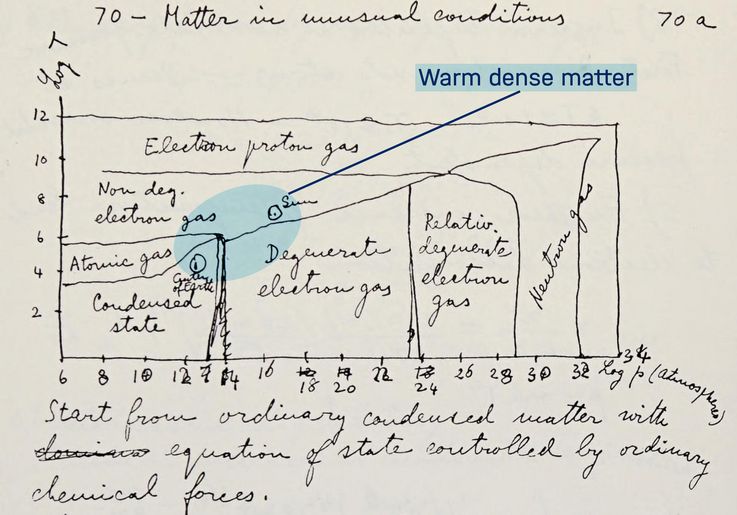 70 - Matter in unusual conditions 70 a
Log T
Warm dense matter
12
Electron proton gas
10
Non deg.
electron gas
8
Sun
6
Atomic gas
Center
of earth
4
Condensed
state
2
Degenerate
electron gas
Relativ.
degenerate
electron
gas
Neutron gas
6 8 10 12 14 16 18 20 22 24 26 28 30 32 34 Log p (atmospheres)
Start from ordinary condensed matter with
equation of state controlled by ordinary
chemical forces.